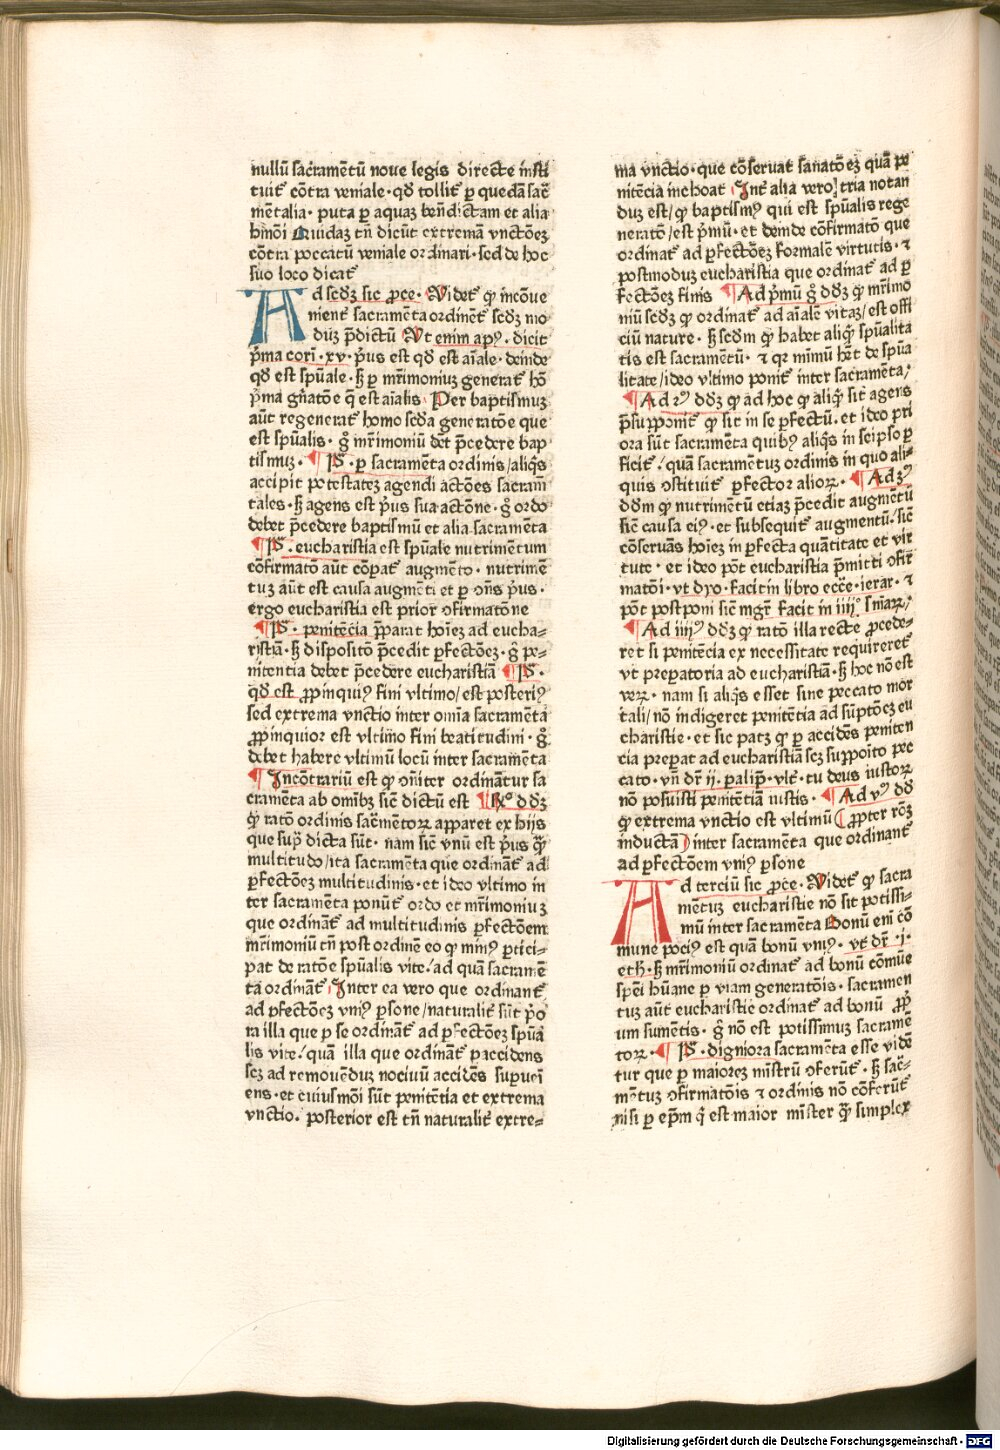 nullū sacramētū noue legis directe insti
tuit̄ cōtra veniale · qd̄ tollit̄ ꝑ quedā sac̄
mētalia · puta ꝑ aquaꝫ bn̄dictam et alia
hm̄oi Quidaꝫ tn̄ dicūt extremā vnctōeꝫ
cōtra peccatū veniale ordinari · sed de hoc
suo loco dicat̄
Ad secd̄ꝫ sic ꝓce · Videt̄ ꝙ incōue
nient̄ sacramēta ordinēt̄ secd̄ꝫ mo
duꝫ p̄dictū Vt enim apꝰ · dicit
p̄ma cori̅ · xv · pͥus est qd̄ est aīale · deinde
qd̄ est spūale · ꝫ ꝑ mr̄imoniuꝫ generat̄ hō
pͥma gn̄atōe q̄ est aīalis Per baptismuꝫ
aūt regenerat̄ homo scd̄a generatōe que
est spūalis · gͦ mr̄imoniū dꝫ p̄cedere bap
tismuꝫ · ¶ Pͣ · ꝑ sacramēta ordinis / aliqͥs
accipit potestateꝫ agendi actōes sacram̄
tales · ꝫ agens est pͥus sua actōne · gͦ ordo
debet p̄cedere baptismū et alia sacramēta
¶ Pͣ · eucharistia est spūale nutrimētum
cōfirmatō aūt cōꝑat̄ augmēto · nutrimē
tuꝫ aūt est causa augmēti et ꝑ ꝯn̄s pͥus ·
ergo eucharistia est prior ꝯfirmatōne
¶ Pͣ · penitēcia p̄parat hoīeꝫ ad eucha-
ristiā · ꝫ dispositō p̄cedit ꝑfectōeꝫ · gͦ pe-
nitentia debet p̄cedere eucharistiā ¶ Pͣ ·
qd̄ est ꝓpinquiꝰ fini vltimo / est posteriꝰ
sed extrema vnctio inter omīa sacramēta
ꝓpinquior est vltimo fini beatitudini · gͦ
debet habere vltimū locū inter sacramēta
¶ Incōtrariū est ꝙ ꝯn̄iter ordinātur sa
cramēta ab omībꝫ sic̄ dictū est ¶ Rͦ dd̄ꝫ
ꝙ ratō ordinis sac̄mētoꝝ apparet ex hijs
que supͣ dicta sūt · nam sic̄ vnū est pͥus ꝙ̄
multitudo / ita sacramēta que ordināt̄ ad
ꝑfectōeꝫ multitudinis · et ideo vltimo in
ter sacramēta ponūt̄ ordo et mr̄imoniuꝫ
que ordināt̄ ad multitudinis ꝑfectōem
mr̄imoniū tn̄ post ordinē eo ꝙ minꝰ ꝑtici-
pat de ratōe spūalis vite / ad quā sacramē
ta ordināt̄ Inter ea vero que ordinant̄
ad ꝑfectōeꝫ vniꝰ ꝑsone / naturalit̄ sūt pͥo
ra illa que ꝑ se ordināt̄ ad ꝑfectōeꝫ spūa
lis vite / quā illa que ordināt̄ ꝑ accidens
scꝫ ad remouēduꝫ nociuū accidēs supuei̅
ens · et cuiusmōi sūt penitētia et extrema
vnctio · posterior est tn̄ naturalit̄ extre-
ma vnctio · que cōseruat sanatōeꝫ quā pe
nitēcia inchoat Int̄ alia vero tria notan
duꝫ est / ꝙ baptismꝰ qui est spūalis rege
neratō / est pͥmū · et deinde cōfirmatō que
ordinat̄ ad ꝑfectōeꝫ formalē virtutis · ⁊
postmoduꝫ eucharistia que ordinat̄ ad ꝑ
fectōeꝫ finis ¶ Ad pͥmū gͦ dd̄ꝫ ꝙ mr̄imo
niū secd̄ꝫ ꝙ ordinat̄ ad aīalē vitaꝫ / est offi
ciū nature · ꝫ secdm̄ ꝙ habet aliqͥ spūalita
tis est sacramētū · ⁊ qꝛ mīmū hēt de spūa
litate / ideo vltimo ponit̄ inter sacramēta /
¶ Ad 2ꝰ dd̄ꝫ ꝙ ad hoc ꝙ aliqͥ sit agens
p̄supponit̄ ꝙ sit in se ꝑfectū · et ideo pri
ora sūt sacramēta quibꝰ aliqͥs in seipso ꝑ
ficit̄ / quā sacramētuꝫ ordinis in quo ali-
quis ꝯstituit̄ ꝑfector alioꝝ · ¶ Ad 3ꝰ
dd̄m ꝙ nutrimētū etiaꝫ p̄cedit augmētū
sic̄ causa eiꝰ · et subsequit̄ augmentū / sic̄
cōseruās hoīeꝫ in ꝑfecta quātitate et vir
tute · et ideo pōt eucharistia p̄mitti ꝯfir̄
matōi · vt dyo · facit in libro ecc̄e · ierar · ⁊
pōt postponi sic̄ mgr̄ facit in iiijͦ sn̄iaꝝ /
¶ Ad iiijꝰ dd̄ꝫ ꝙ ratō illa recte ꝓcede-
ret si penitēcia ex necessitate requireret̄
vt preparatoria ad eucharistiā · ꝫ hoc nō est
veꝝ · nam si aliqͥs esset sine peccato mor
tali / nō indigeret penitētia ad sūptōeꝫ eu
charistie · et sic patꝫ ꝙ ꝑ accidēs peniten
cia preꝑat ad eucharistiā scꝫ supposito pec
cato · vn̄ dr̄ ij · paliꝑ · vlt̄ · tu deus iustoꝝ
nō posuisti penitētiā iustis · ¶ Ad vͦ dd̄
ꝙ extrema vnctio est vltimū ( ꝓpter rōꝫ
inductā ) inter sacramēta que ordinant̄
ad ꝑfectōem vniꝰ ꝑsone
Ad terciū sic ꝓce · Videt̄ ꝙ sacra
mētuꝫ eucharistie nō sit potissi-
mū inter sacramēta Bonū eni̅ cō
mune pociꝰ est quā bonū vniꝰ · vt dr̄ · i ·
eth · ꝫ mr̄imoniū ordinat̄ ad bonū cōmūe
spēi hūane ꝑ viam generatōis · sacramen
tuꝫ aūt eucharistie ordinat̄ ad bonū ꝓpͥ
um sumētis · gͦ nō est potissimuꝫ sacramē
toꝝ · ¶ Pͣ · digniora sacramēta esse vidē
tur que ꝑ maioreꝫ mīstrū ꝯferūt̄ · ꝫ sac̄-
mētuꝫ ꝯfirmatōis ⁊ ordinis nō cōferūt̄
nisi ꝑ epm̄ qͥ est maior mīster ꝙ̄ simplex
Digitalisierung gefördert durch die Deutsche Forschungsgemeinschaft - DFG